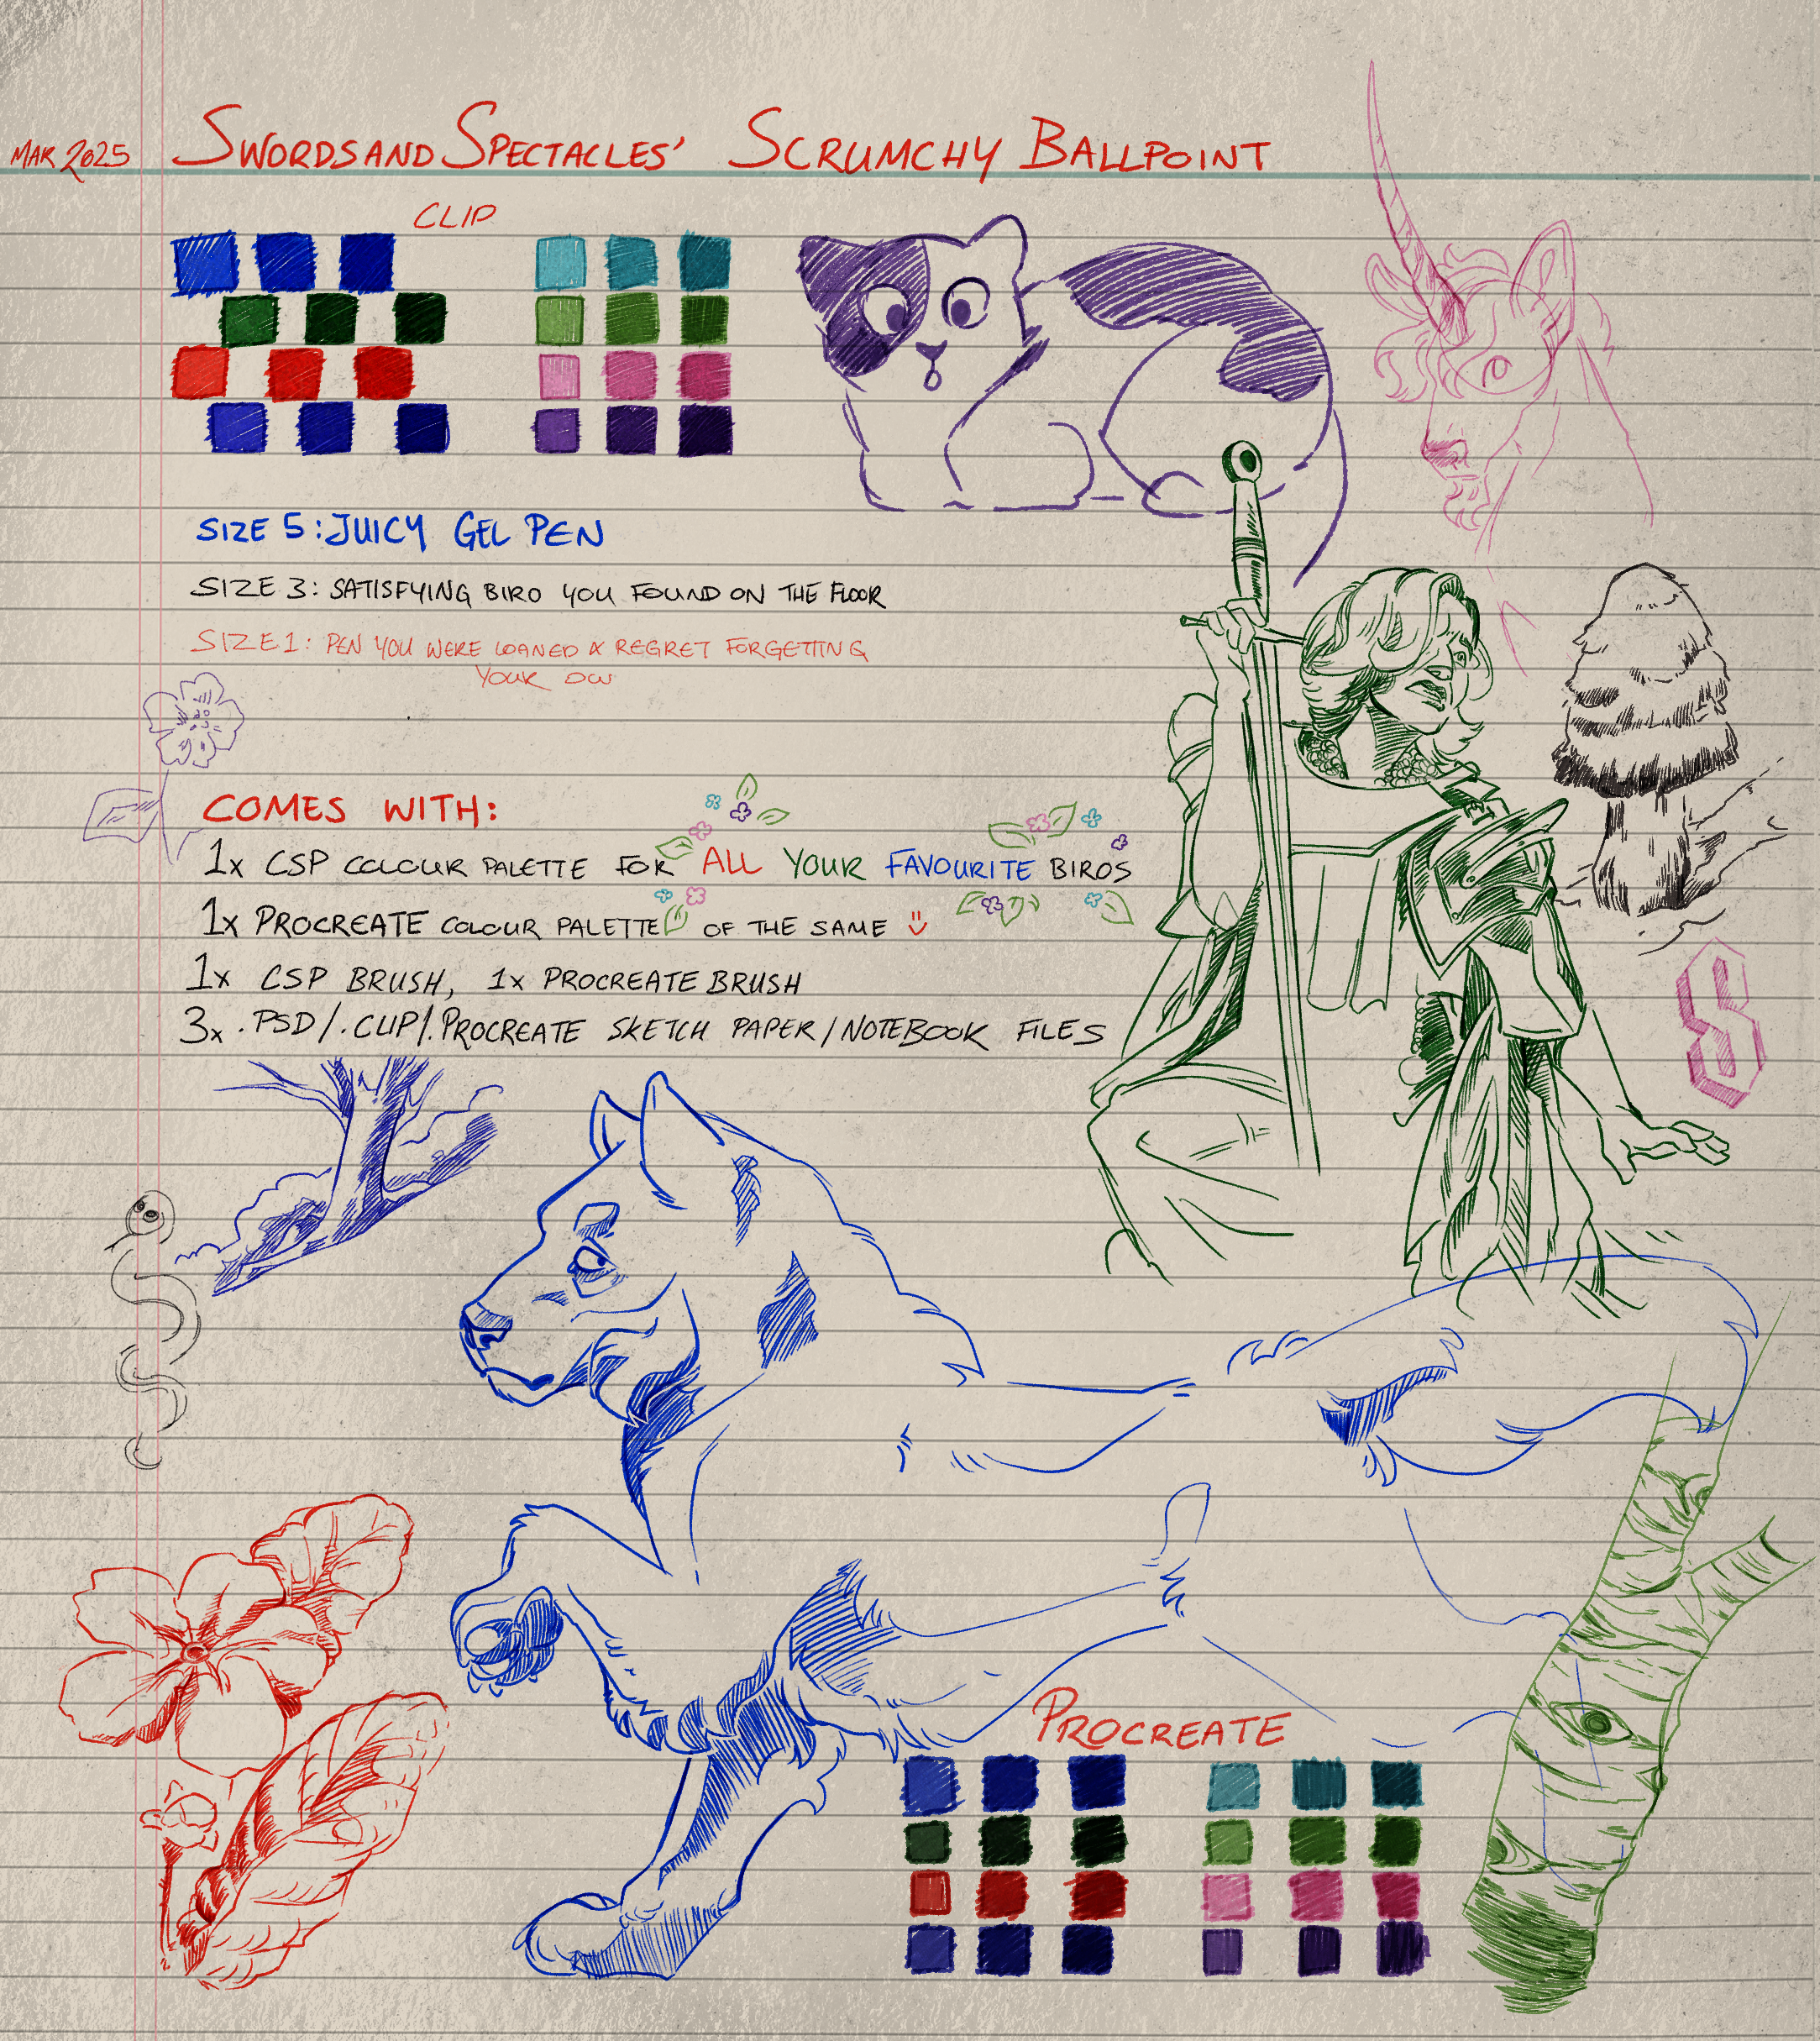 MAR 2025
SWORDSANDSPECTACLES' SCRUMCHY BALLPOINT
CLIP
SIZE 5: JUICY GEL PEN
SIZE 3: SATISFYING BIRO YOU FOUND ON THE FLOOR
SIZE 1: PEN YOU WERE LOANED & REGRET FORGETTING
YOUR OW
COMES WITH:
1x CSP COLOUR PALETTE FOR ALL YOUR FAVOURITE BIROS
1x PROCREATE COLOUR PALETTE OF THE SAME :)
1x CSP BRUSH, 1x PROCREATE BRUSH
3x .PSD/.CLIP/.PROCREATE SKETCH PAPER/NOTEBOOK FILES
PROCREATE